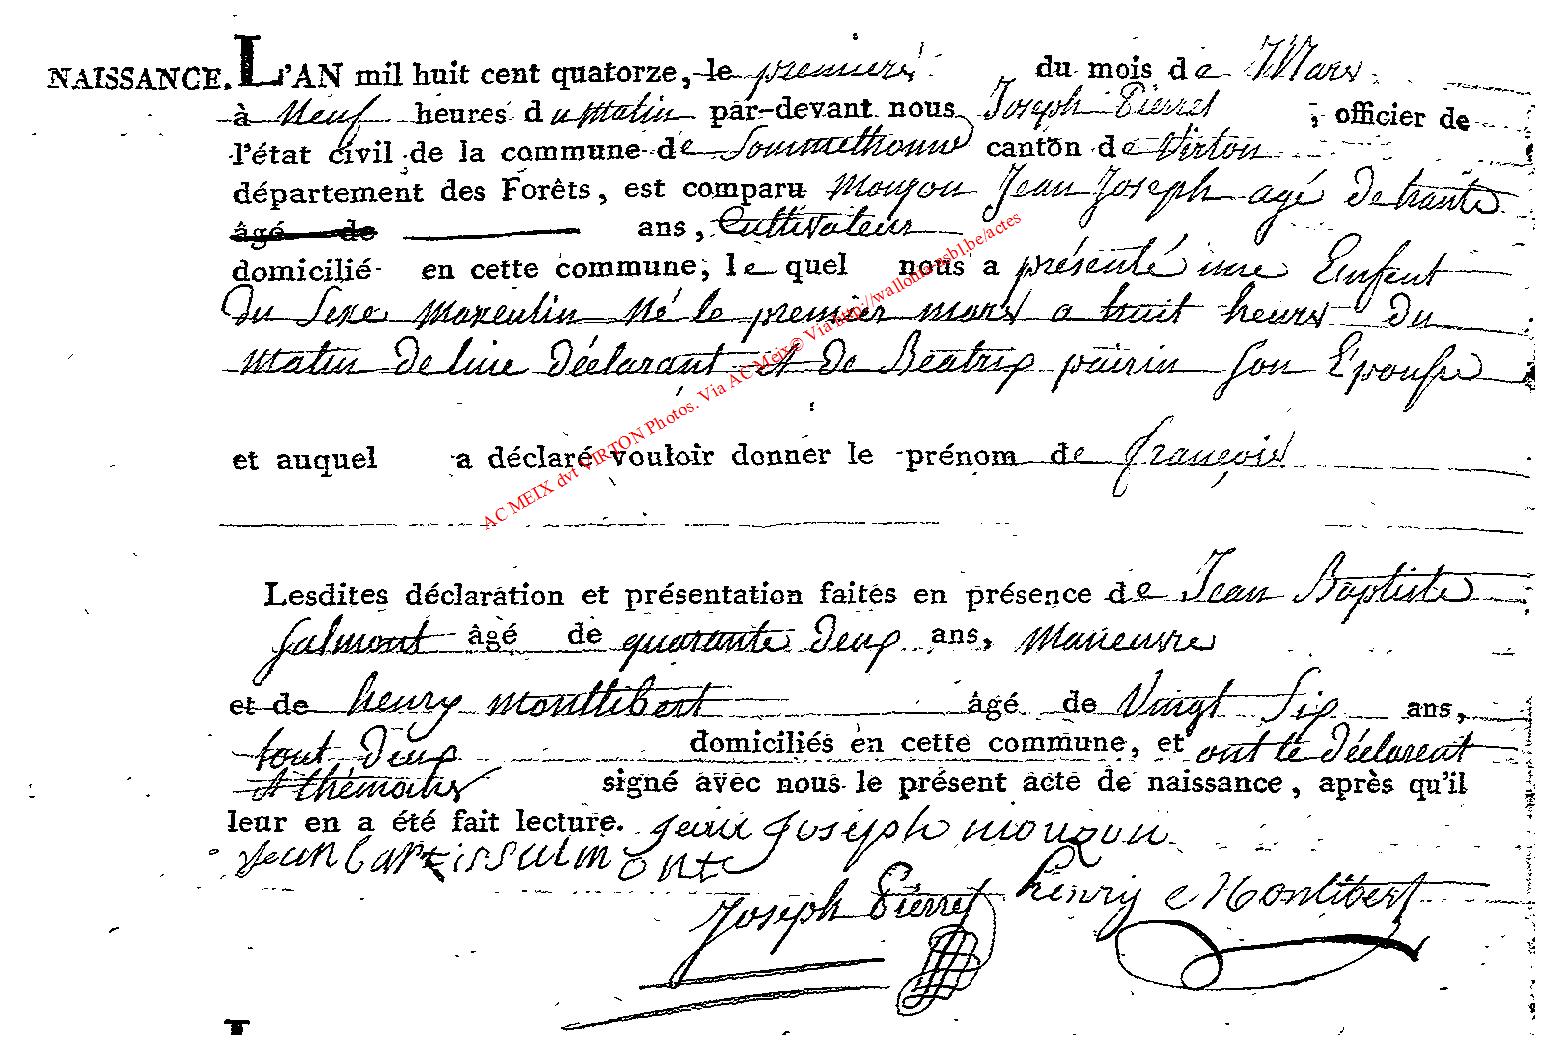 NAISSANCE. L'AN mil huit cent quatorze, le premiere du mois de Mars
à Neuf heures du Matin par-devant nous Joseph Pierret, officier de
l'état civil de la commune de Sommethonne canton de Virton
département des Forêts, est comparu Mouzon Jean Joseph agé De trante
âgé de ans, Cultivateur
domicilié en cette commune, le quel nous a présenté une Enfent
Du Sexe Masculin Né le premier mars a huit heurs Du
Matin De luie Déclarant Et De Béatrix poirin Son Epouse
et auquel a déclaré vouloir donner le prénom de françois
Lesdites déclaration et présentation faites en présence de Jean Baptiste
Salmont âgé de quarante Deux ans, Maneuvre
et de henry montlibert âgé de Vingt Six ans,
tout Deux domiciliés en cette commune, et ont le Déclarent
Et thémoins signé avec nous le présent acte de naissance, après qu'il
leur en a été fait lecture. jean joseph mouzon
jean batis salmont
Joseph Pierret henry Monlibert
AC MEIX dvt VIRTON Photos. Via AC Meix© Via http://wallonia-asbl.be/actes